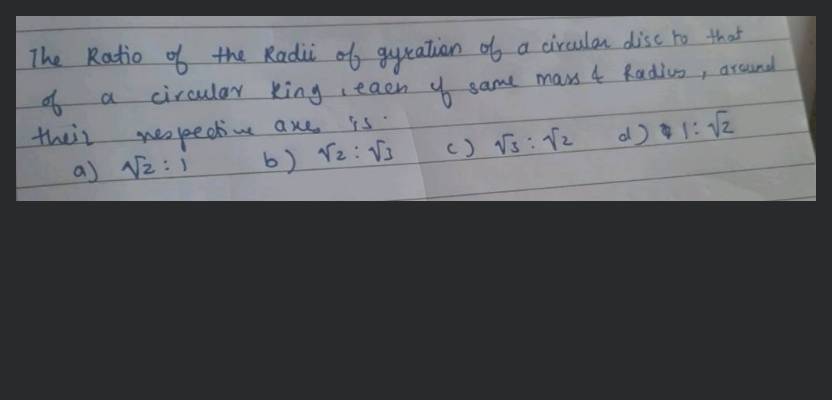 The Ratio of the Radii of gyration of a circular disc to that
of a circular Ring, each of same mass & Radius, around
their respective axes is.
a) √2 : 1 b) √2 : √3 c) √3 : √2 d) 1 : √2